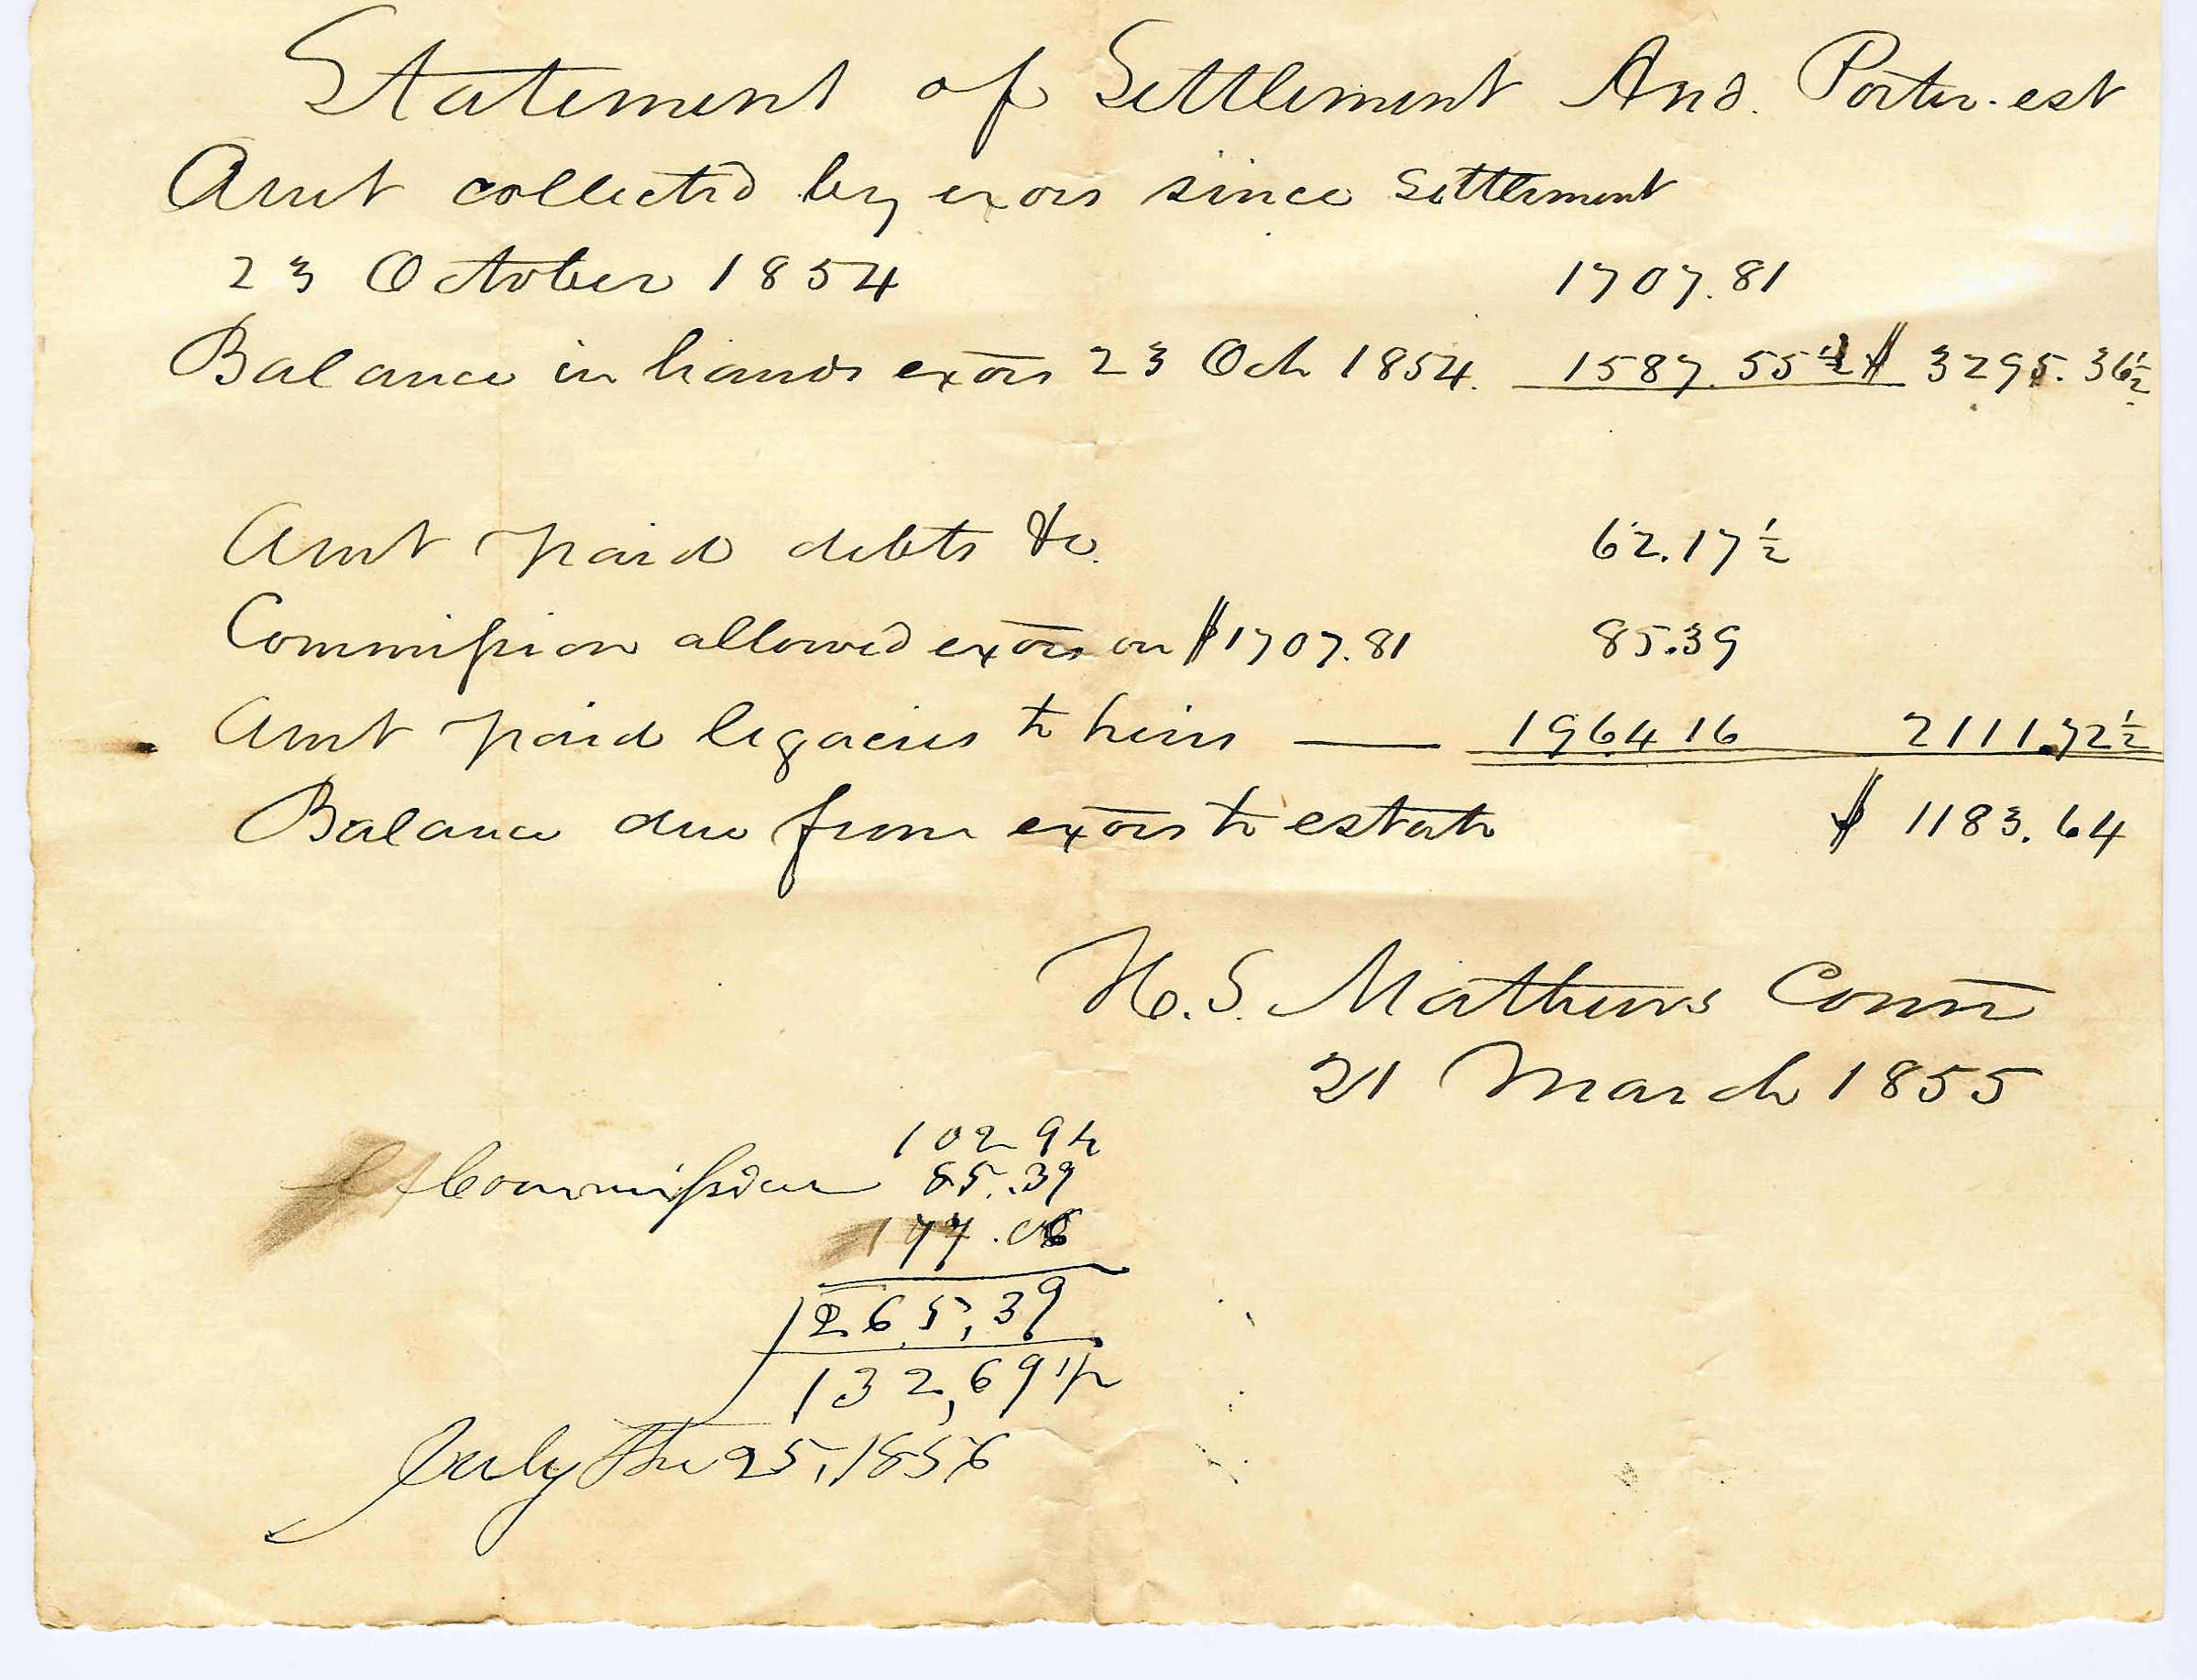 Statement of Settlement And. Porter. est
Amt collected by exors since Settlement
23 October 1854 1707.81
Balance in hands exors 23 Oct 1854. 1587.55½ $ 3295.36½
Amt paid debts &c. 62.17½
Commission allowed exors on $1707.81 85.39
Amt paid legacies to heirs — 1964 16 2111.72½
Balance due from exors to estate $ 1183.64
H. S. Mathews Comr
21 March 1855
102 94
Commission 85.39
177.06
265,39
132,69 1/2
July the 25, 1856